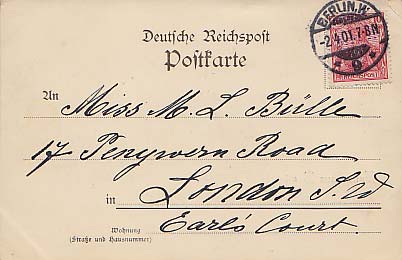 BERLIN.W.
-2.4.01.7-8N.
* 9 *
Deutsche Reichspost
Postkarte
An
Miss M. L. Bülle
17 Penywern Road
in London S.W
Earl's Court.
Wohnung
(Straße und Hausnummer)